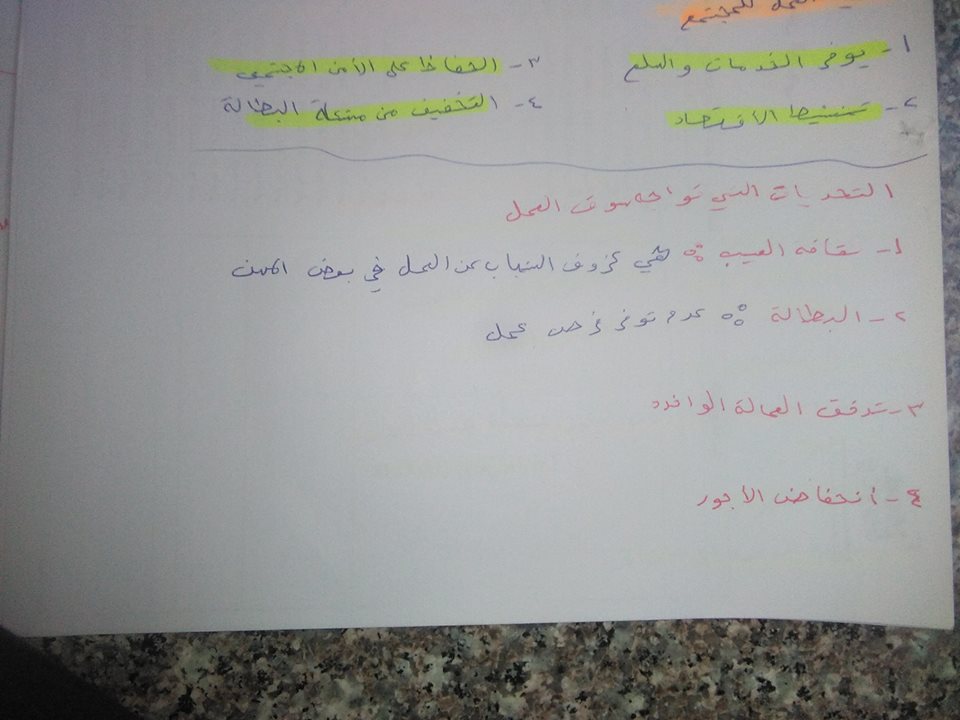 العمل للمجتمع
١- يوفر الخدمات والسلع
٣- الحفاظ على الأمن الاجتمعي
٢- تنشيط الاقتصاد
٤- التخفيف من مشكلة البطالة
التحديات التي تواجه سوق العمل
١- سقافه العيب : هي عزوف الشباب عن العمل في بعض المهن
٢- البطالة : عدم توفر فرص عمل
٣- تدفق العمالة الوافده
٤- أنخفاض الأجور